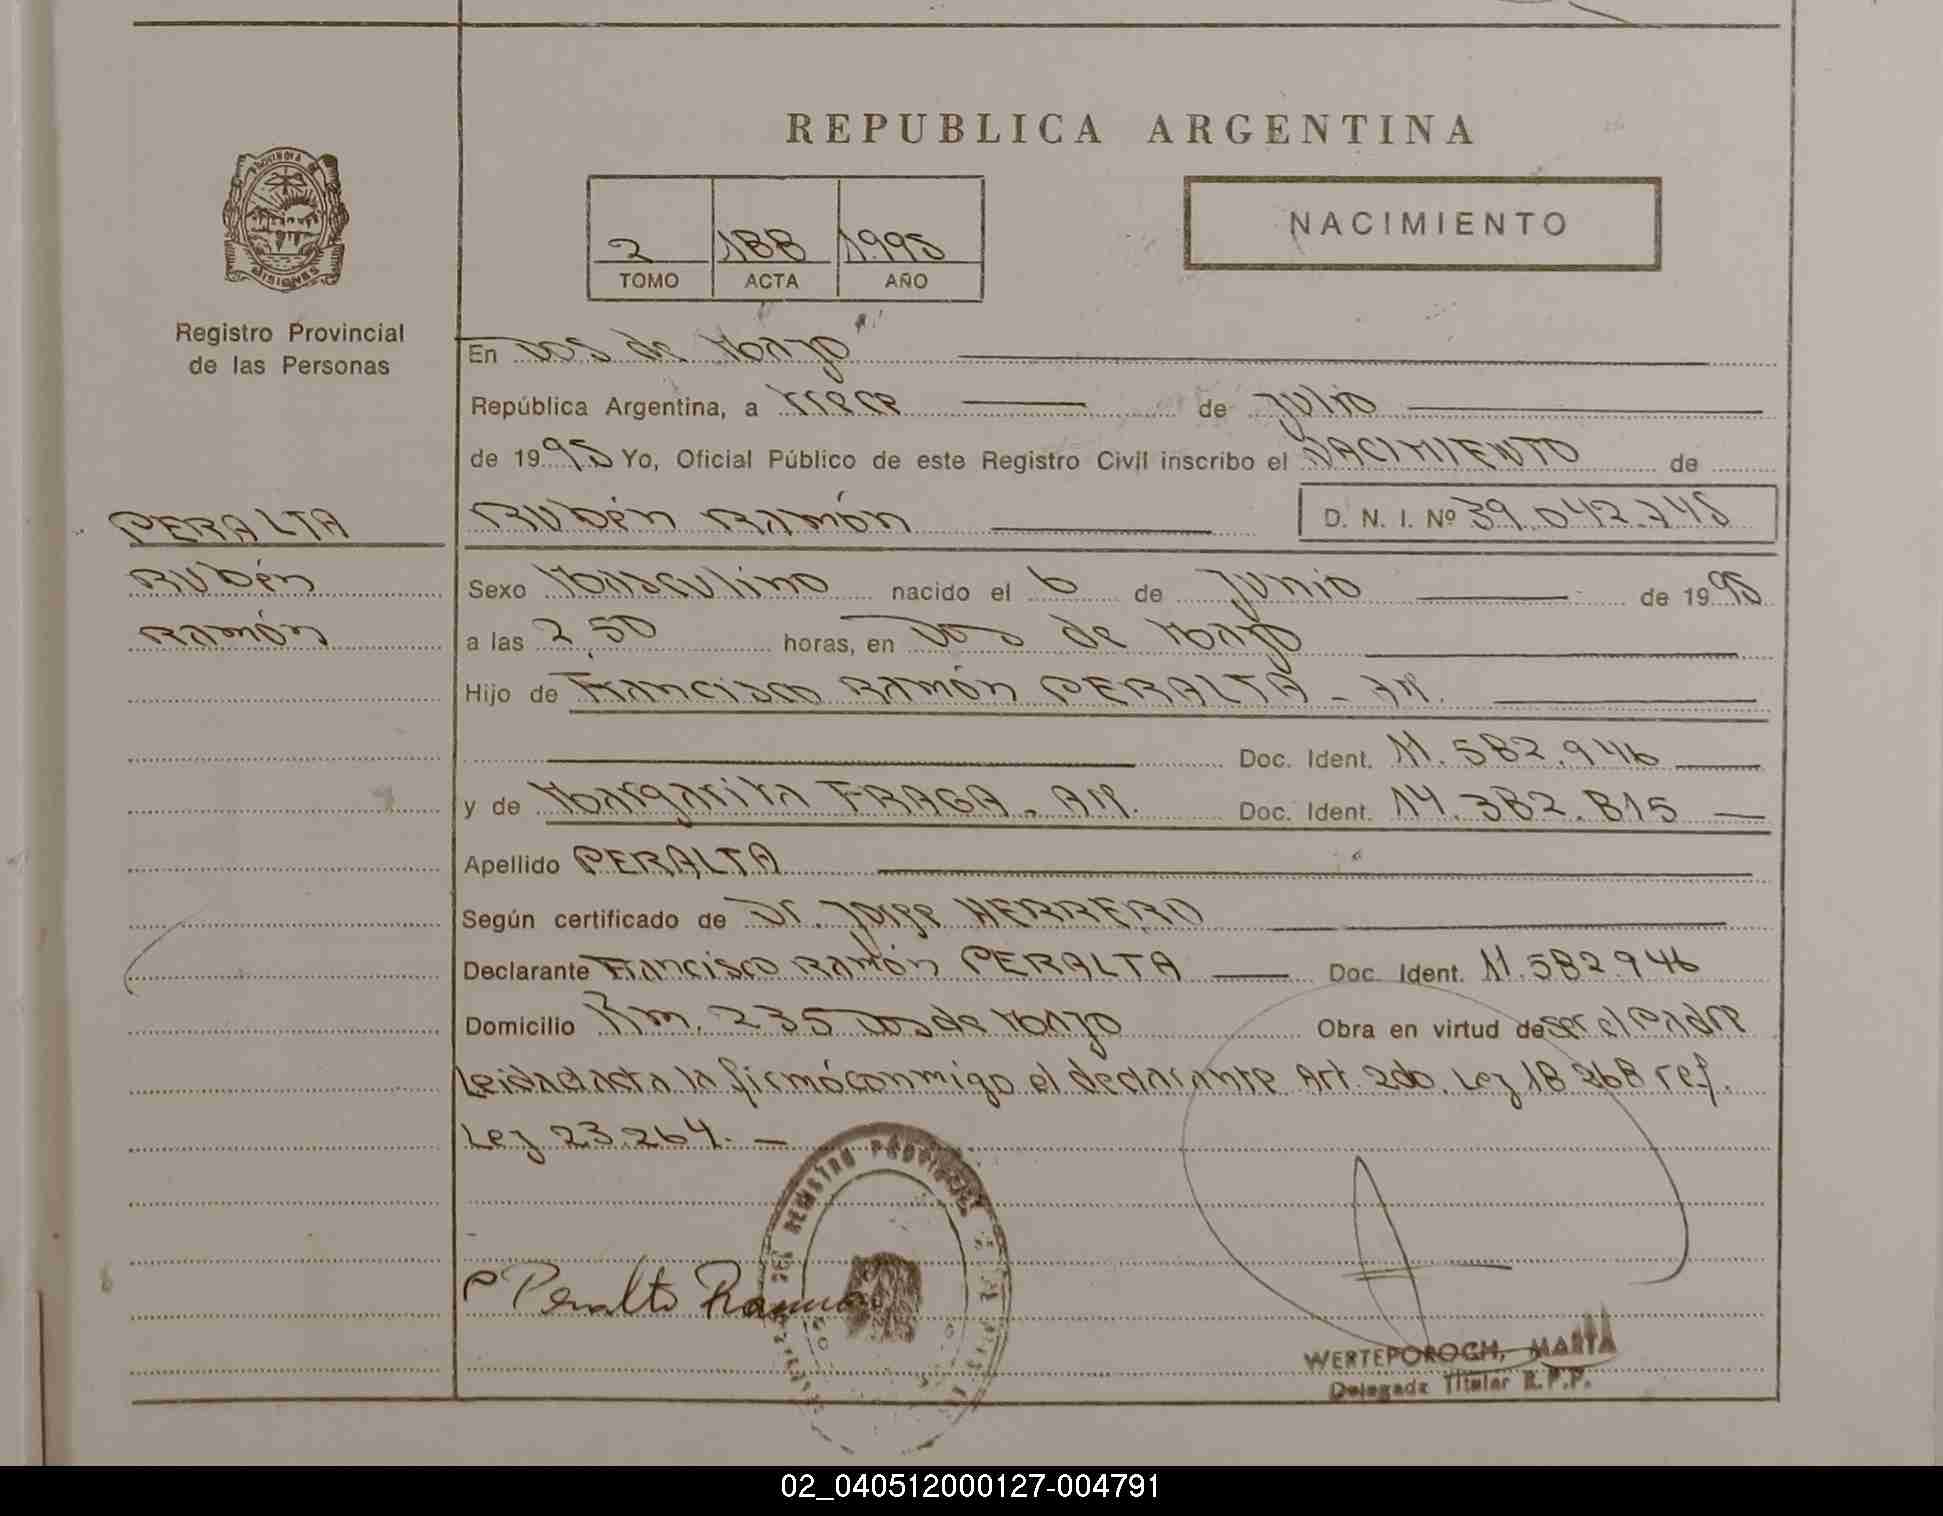 REPUBLICA ARGENTINA
PROVINCIA DE
MISIONES
NACIMIENTO
2 188 1.995
TOMO ACTA AÑO
Registro Provincial
de las Personas
En Dos de Marzo
República Argentina, a trece de Julio
de 1995 Yo, Oficial Público de este Registro Civil inscribo el NACIMIENTO de
PERALTA
Rubén Ramón D. N. I. Nº 39.042.745
Rubén
Ramón
Sexo Masculino nacido el 6 de Junio de 1995
a las 2,50 horas, en Dos de Marzo
Hijo de Francisco Ramón PERALTA - Ar.
Doc. Ident. 11.582.946
y de Margarita FRAGA - Ar. Doc. Ident. 14.382.815
Apellido PERALTA
Según certificado de Dr. Jorge HERRERO
Declarante Francisco Ramón PERALTA Doc. Ident. 11.582.946
Domicilio Km. 235 Dos de Marzo Obra en virtud de ser el Padre
Leida el acta la firmó conmigo el declarante Art. 2do. Ley 18268 ref.
Ley 23.264.-
Peralta Ramon
WERTEPOROCH, MARTA
Delegada Titular R.P.P.
02_040512000127-004791